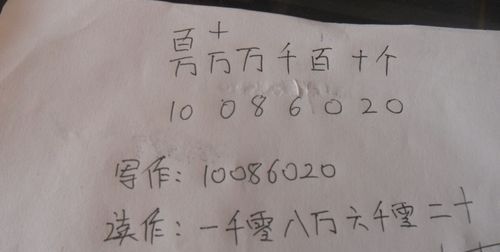 百十
万万万千百十个
10 0 8 6 0 2 0
写作：10086020
读作：一千零八万六千零二十